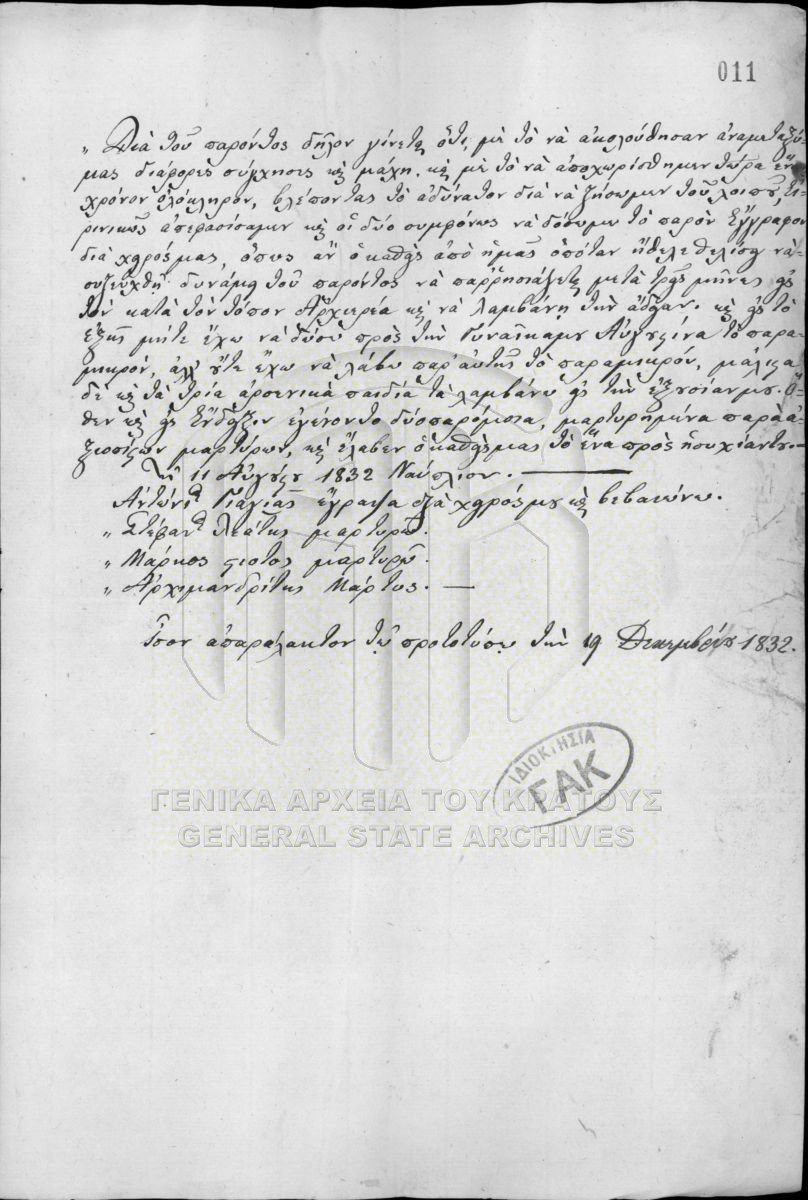 011
„ Διὰ τοῦ παρόντος δῆλον γίνεται ὅτι, μὲ τὸ νὰ ἀκολούθησαν ἀναμεταξύ-
μας διάφορες σύγχησες καὶ μάχη, καὶ μὲ τὸ νὰ ἀποχωρίσθημεν τώρα ἕνα
χρόνον ὁλόκληρον, βλέποντας τὸ ἀδύνατον διὰ νὰ ζήσωμεν τοῦ λοιποῦ, εἰ-
ρινικῶς ἀπεφασίσαμεν καὶ οἱ δύο συμφόνως νὰ δόσωμεν τὸ παρὸν ἔγγραφον
διὰ χειρός μας, ὅπως ἂν ὁ καθεὶς ἀπὸ ἡμᾶς ὁπόταν ἤθελε θελίσῃ νὰ
συζευχθῇ δυνάμει τοῦ παρόντος νὰ παῤῥησιάζεται μετὰ τρεῖς μῆνες εἰς
τὸν κατὰ τὸν τόπον Ἀρχιερέα καὶ νὰ λαμβάνῃ τὴν ἄδειαν. καὶ εἰς τὸ
ἑξῆς μήτε ἔχω νὰ δώσω πρὸς τὴν Γυναῖκαμου Αὐγουστίνα τὸ παρα-
μικρόν, ἀλλ' οὔτε ἔχω νὰ λάβω παρ' αὐτῆς τὸ παραμικρόν, μάλιστα
δὲ καὶ τὰ τρία ἀρσενικὰ παιδιὰ τὰ λαμβάνω εἰς τὴν ἐξουσίαν μου. ὅ-
θεν καὶ εἰς ἔνδειξιν ἐγένοντο δύο παρόμοια, μαρτυρημένα παρὰ ἀ-
ξιοπίστων μαρτύρων, καὶ ἔλαβεν ὁ καθείς μας τὸ ἕνα πρὸς ἡσυχίαντου.—
Τῇ 11 Αὐγούστου 1832 Ναύπλιον. —
Ἀντώνιος Γιαγιᾶς ἔγραψα διὰ χειρός μου καὶ βεβαιώνω.
„ Στέφανος μαρτυρῶ.
„ Μάρκος μαρτυρῶ.
„ Ἀρχιμανδρίτης Μάρτυς. —
Ἴσον ἀπαράλακτον τῷ προτοτύπῳ τὴν 19 Δεκεμβρίου 1832.
ΙΔΙΟΚΤΗΣΙΑ
ΓΑΚ
ΓΕΝΙΚΑ ΑΡΧΕΙΑ ΤΟΥ ΚΡΑΤΟΥΣ
GENERAL STATE ARCHIVES